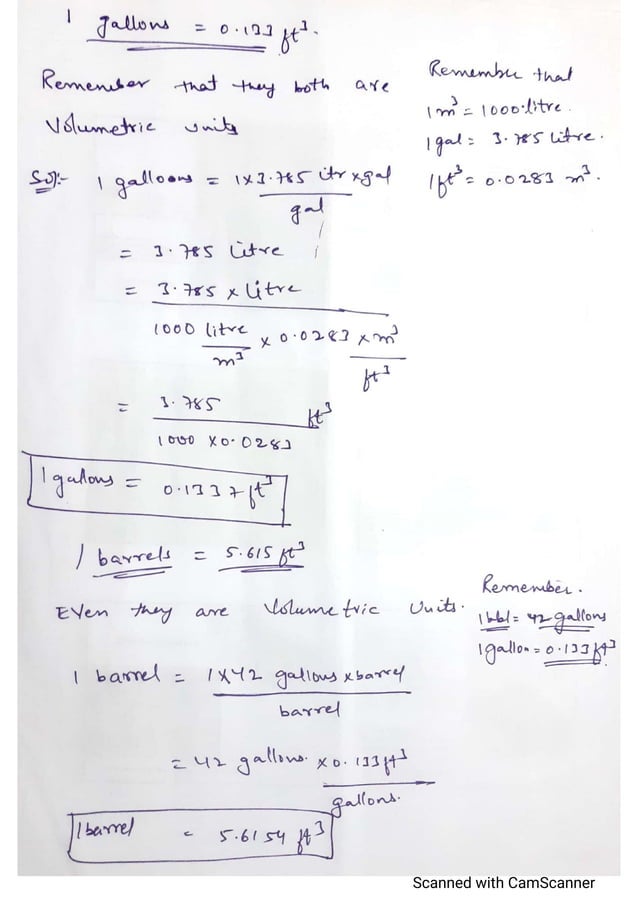 1 gallons = 0.133 ft³.
Remember that they both are
Volumetric units
Remember that
1m³ = 1000 litre.
1gal = 3.785 litre.
1ft³ = 0.0283 m³.
Sol:- 1 galloons = 1x3.785 ltr x gal
gal
= 3.785 Litre
= 3.785 x Litre
1000 litre x 0.0283 x m³
m³ ft³
= 3.785 ft³
1000 x 0.0283
1 gallons = 0.1337 ft³
1 barrels = 5.615 ft³
Even they are Volumetric Units.
Remember.
1 bbl = 42 gallons
1 gallon = 0.133 ft³
1 barrel = 1x42 gallons x barrel
barrel
= 42 gallons. x 0.133 ft³
gallons.
1 barrel = 5.6154 ft³
Scanned with CamScanner